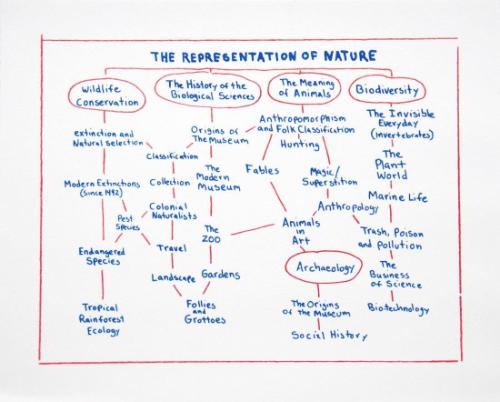 THE REPRESENTATION OF NATURE
Wildlife
Conservation
The History of the
Biological Sciences
The Meaning
of Animals
Biodiversity
extinction and
Natural selection
Modern Extinctions
(since 1492)
Pest
Species
Endangered
Species
Tropical
Rainforest
Ecology
Origins of
The Museum
Classification
Collection
Colonial
Naturalists
Travel
Landscape
The
Modern
Museum
The
ZOO
Gardens
Follies
and
Grottoes
Anthropomorphism
and Folk Classification
Hunting
Fables
Magic/
Superstition
Anthropology
Animals
in
Art
Archaeology
The Origins
of the Museum
Social History
The Invisible
Everyday
(invertebrates)
The
Plant
World
Marine Life
Trash, Poison
and Pollution
The
Business
of Science
Biotechnology